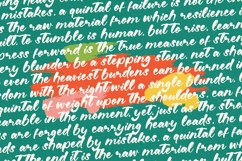 mistakes. a quintal of failure is not the
is the raw material from which resilience
to stumble is human, but to rise,
press forward is the true measure of
blunder be a stepping
the heaviest burdens can be turned
with the right will a single blunder,
of weight upon the shoulders, can
in the moment. yet, just as
are forged by carrying heavy loads. the
are shaped by mistakes. a quintal of
end it is the raw material from